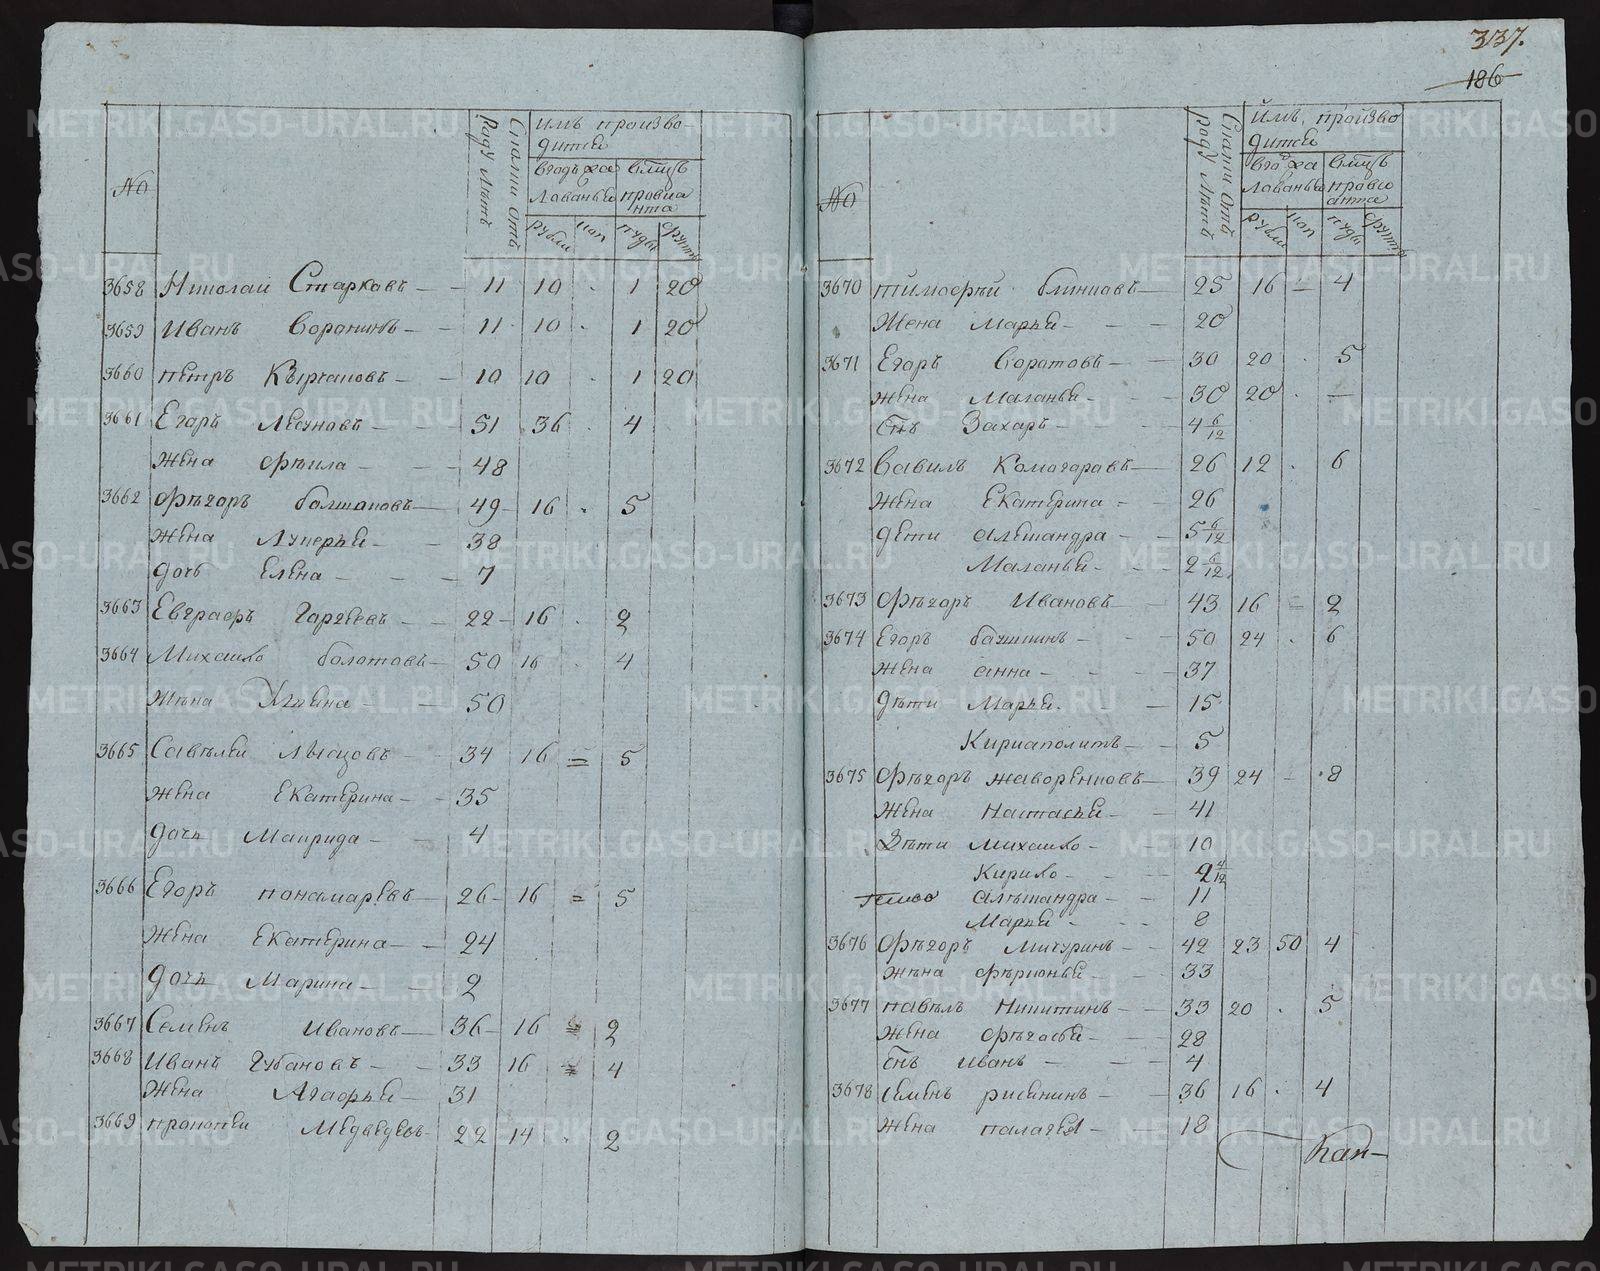 337.
186
№
Роду Лѣтъ
имъ производитси
Вгодъ жалованьи
Вмцъ провианта
рубли
коп
пуды
фунты
3658 Николаи Старковъ — 11 10 . 1 20
3659 Иванъ Воронинъ — 11 10 . 1 20
3660 петръ Кыргановъ — 10 10 . 1 20
3661 Егоръ Лесуновъ — 51 36 . 4
Жена Фекла — 48
3662 Фѣдоръ балшаковъ — 49 16 . 5
Жена Лукерьи — 38
дочь Елена — 7
3663 Евграфъ Гаргеевъ — 22 16 . 2
3664 Михаило болотовъ — 50 16 . 4
Жѣна Улиана — 50
3665 Савѣлеи Лысцовъ — 34 16 = 5
Жена Екатерина — 35
дочь Маврида — 4
3666 Егоръ понамаревъ — 26 16 = 5
Жена Екатерина — 24
дочь Марина — 2
3667 Семенъ Ивановъ — 36 16 = 2
3668 Иванъ Губановъ — 33 16 = 4
Жена Агафьи — 31
3669 прокопеи Медведевъ 22 14 . 2
№
Роду Лѣтъ
имъ производитси
Вгодъ жалованьи
Вмцъ провианта
рубли
коп
пуды
фунты
3670 тимофѣи блиновъ — 25 16 = 4
Жена Марьи — 20
3671 Егоръ Соротовъ — 30 20 . 5
Жена Маланьи — 30 20 . —
Снъ Захаръ — 4 6/12
3672 Савилъ Комогоравъ — 26 12 . 6
Жена Екатерина — 26
дети Алешандра — 5 6/12
Маланьи — 2 6/12
3673 Фѣдоръ Ивановъ — 43 16 = 2
3674 Егоръ башкинъ — 50 24 . 6
Жена анна — 37
дѣти Марьи — 15
Кириаполитъ — 5
3675 Фѣдоръ жаворенковъ — 39 24 — 8
Жена Настасьи — 41
Дѣти Михаило — 10
Кирило — 2 4/12
Алѣшандра — 11
Марьи — 8
3676 Фѣдоръ Мичуринъ — 42 23 50 4
жѣна Фѣврионьи — 33
3677 павѣлъ Никитинъ — 33 20 . 5
Жена Фѣдосьи — 28
Снъ Иванъ — 4
3678 Семенъ рисенинъ — 36 16 . 4
Жена палагеи — 18
Кан—
METRIKI.GASO-URAL.RU